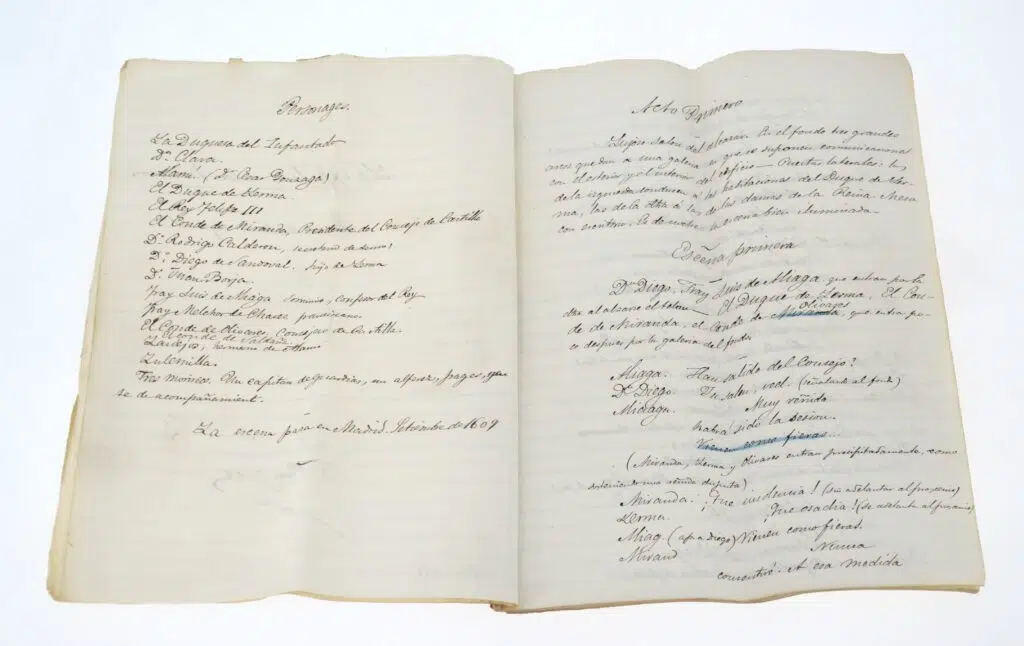 Personages.
La Duquesa del Infantado
Dª Clara.
Alamí. (Dn Cesar Gonzaga)
El Duque de Lerma.
El Rey Felipe III
El Conde de Miranda, Presidente del Consejo de Castilla
Dn Rodrigo Calderon,
Dn Diego de Sandoval. hijo de Lerma
Dn Juan Borja.
Fray Luis de Aliaga Dominico, confesor del Rey
Fray Melchor de Chaves franciscano.
El Conde de Olivares, Consejero de Castilla.
y el conde de
hermano de Alamí
Zulemilla.
Tres moriscos. Un capitan de guardias, un alferez, pages, gen-
te de acompañamiento.
La escena pása en Madrid. Setiembre de 1609
Acto Primero
Lujoso salon del alcazar. En el fondo tres grandes
arcos que dan a una galeria en que se suponen comunicaciones
con el exterior y el interior del edificio - Puertas laterales: las
de la izquierda conducen á las habitaciones del Duque de Ler-
ma, las de la dra á las de las damas de la Reina. Mesa
con escritorio. Es de noche, la escena bien iluminada.
Escena primera
Dn Diego. Fray Luis de Aliaga que entran por la
dra al alzarse el telon. El Duque de Lerma, El Con-
de de Miranda, el Conde de Miranda, Olivares que entra po-
co despues por la galeria del fondo.
Aliaga. Han salido del Consejo?
Dn Diego. Ya salen, ved. (señalando al fondo)
Aliaga. Muy reñida
habrá sido la sesion.
Vienen como fieras...
(Miranda, Lerma y Olivares entran precipitadamente, como
sosteniendo una reñida disputa)
Miranda. ¡Que insolencia! (sin adelantar al proscenio)
Lerma. ¡Que osadia! (se adelanta al proscenio)
Aliag. (ap. a Diego) Vienen como fieras.
Mirand Nunca
consentiré. A esa medida